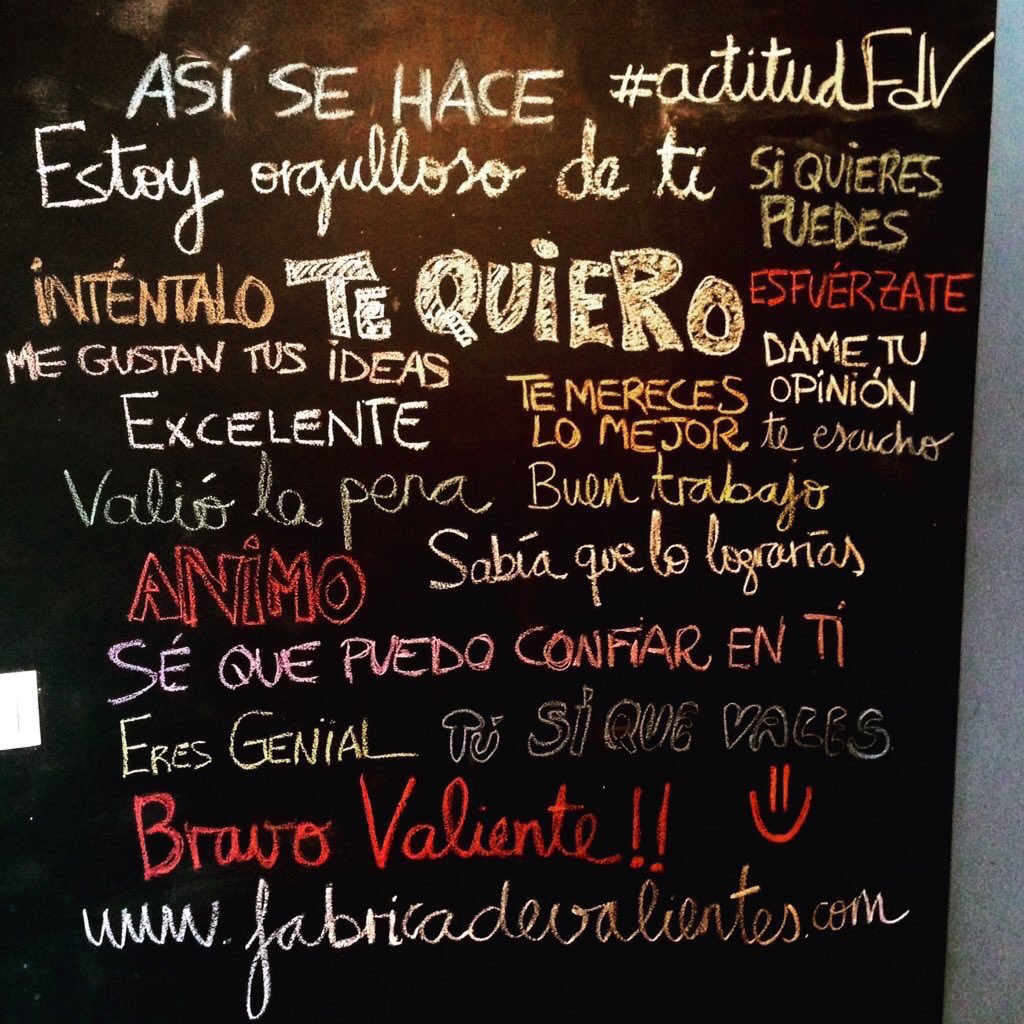 ASÍ SE HACE #actitudFdV
Estoy orgulloso de ti
SI QUIERES
PUEDES
INTÉNTALO
TE QUIERO
ESFUÉRZATE
ME GUSTAN TUS IDEAS
DAME TU
OPINIÓN
EXCELENTE
TE MERECES
LO MEJOR
te escucho
Valió la pena
Buen trabajo
ANIMO
Sabía que lo lograrías
SÉ QUE PUEDO CONFIAR EN TÍ
ERES GENIAL
TÚ SÍ QUE VALES
Bravo Valiente!!
www.fabricadevalientes.com